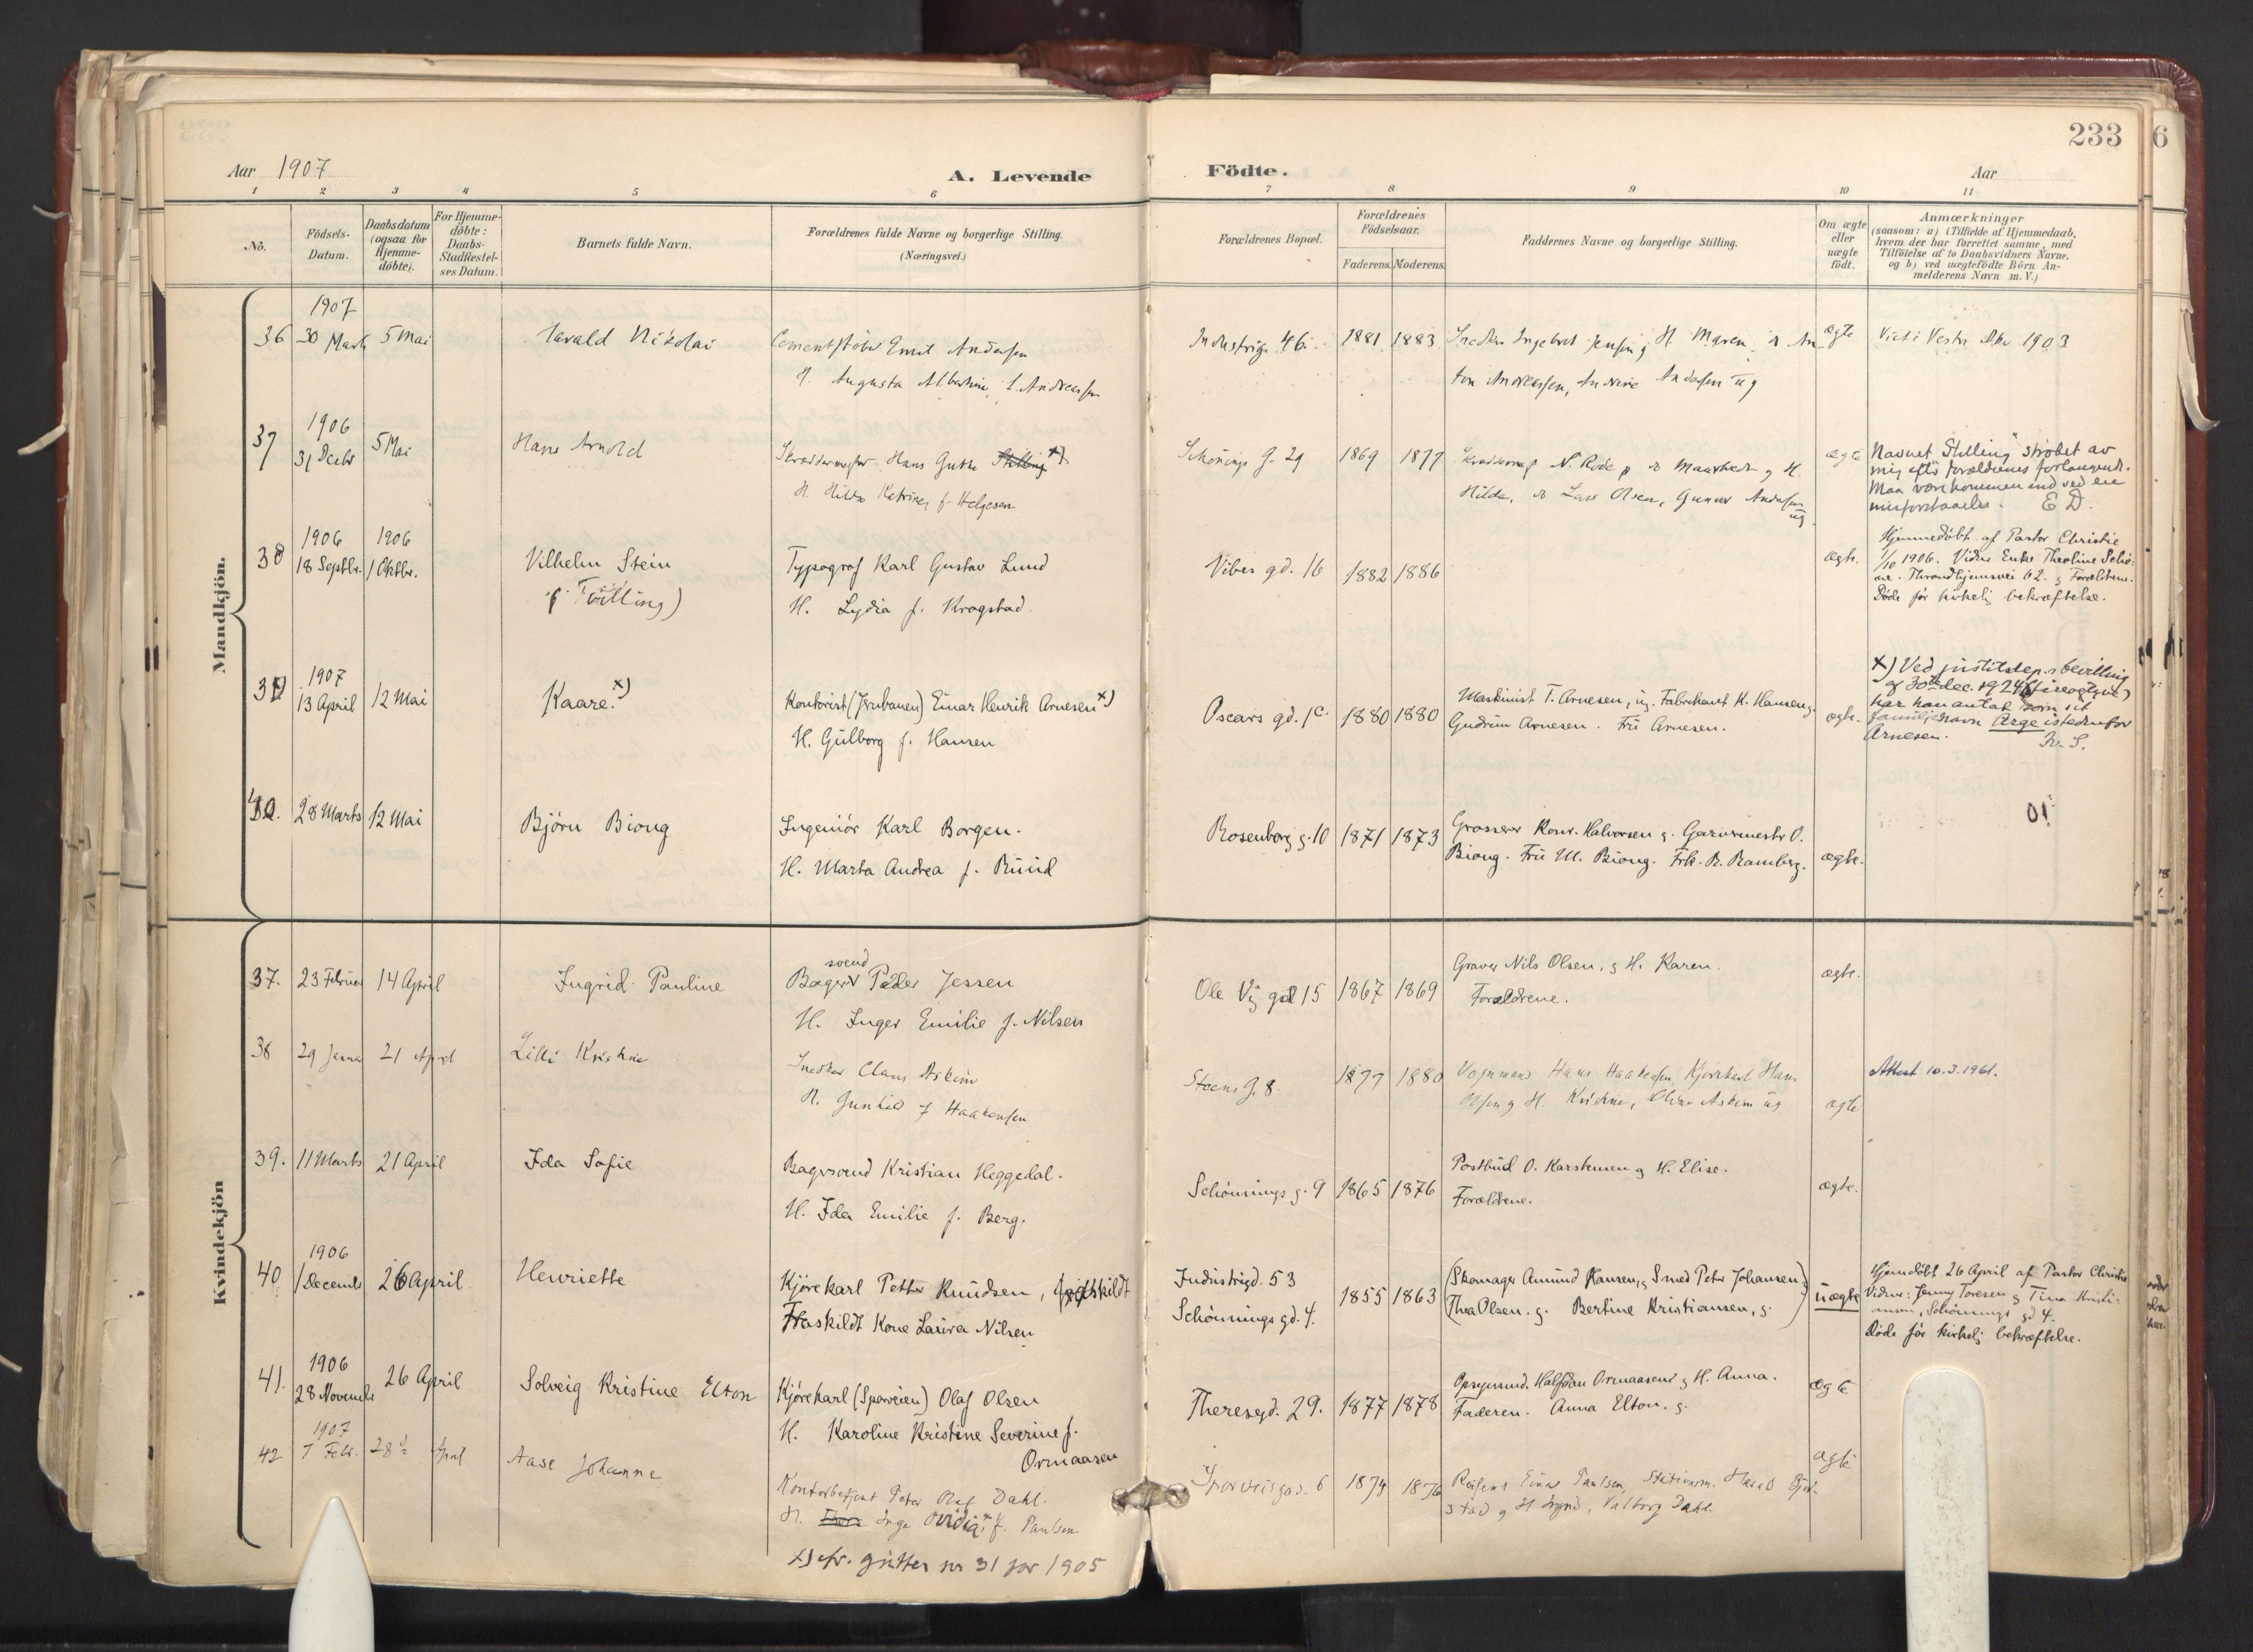 233
6
Aar 1907
A. Levende
Födte.
Aar
1 2 3 4 5 6 7 8 9 10 11
No.
Födsels-
Datum.
Daabsdatum
(ogsaa for
Hjemme-
döbte).
For Hjemme-
döbte:
Daabs-
Stadfæstel-
ses Datum.
Barnets fulde Navn.
Forældrenes fulde Navne og borgerlige Stilling.
(Næringsvei.)
Forældrenes Bopæl.
Forældrenes
Födselsaar.
Faderens. Moderens.
Faddernes Navne og borgerlige Stilling.
Om ægte
eller
uægte
födt.
Anmærkninger
(saasom: a) i Tilfælde af Hjemmedaab,
hvem der har forrettet samme, med
Tilföielse af to Daabsvidners Navne,
og b) ved uægtefödte Börn An-
melderens Navn m. V.)
Mandkjön.
1907
36 30 Marts 5 Mai
Harald Nikolai
Cementstøber Emil Andersen
H. Augusta Albertine f. Andreassen
Industrig. 46.
1881 1883
Snedker Ingebret Jensen g H. Maren
Andreassen, Andersen ug
ægte
Viet i Vestre 1903
1906
37 31 Decbr 5 Mai
Hans Arnold
Skræddermester Hans Stilling x)
H. Hilda f. Helgesen.
Schønings g. 29
1869 1877
N. Rode g
Hilda, Lars Olsen, Gunvor Andersen
ug.
ægte
Navnet "Stilling" strøket av
mig efter forældrenes forlangende.
Maa være kommen ind ved en
misforstaaelse. E D.
1906 1906
38 18 Septbr. 1 Oktbr.
Vilhelm Stein
(Tvilling)
Typograf Karl Gustav Lund
H. Lydia f. Krogstad.
Vibes gd. 16
1882 1886
ægte.
Hjemmedøbt af Pastor Christie
1/10 1906. Vidner Enke Theoline
Throndhjemsvei 62. g Forældrene.
Døde før kirkelig bekræftelse.
1907
39 13 April 12 Mai
Kaare. x)
Kontorist (Jernbanen) Einar Henrik Arnesen x)
H. Gulborg f. Hansen
Oscars gd. 1c.
1880 1880
Maskinist T. Arnesen, ug. Fabrikant K. Hansen g.
Gudrun Arnesen. Fru Arnesen.
ægte.
x) Ved justitsdep.s bevilling
af 30te dec. 1924 (fireogtyve)
har han antat som sit
familienavn Arge istedenfor
Arnesen. Fr. S.
40. 28 Marts 12 Mai
Bjørn Biong
Ingeniør Karl Borgen.
H. Marta Andrea f. Ruud
Rosenborg g. 10
1871 1873
Grosserer Konr. Halvorsen g. Garvermester O.
Biong. Fru M. Biong. Frk. R. Ramberg.
ægte.
01.
Kvindekjön
37. 23 Februar 14 April
Ingrid Pauline
svend
Bager Peder Jessen
H. Inger Emilie f. Nilsen
Ole Vig gd 15
1867 1869
Graver Nils Olsen, g H. Karen.
Forældrene.
ægte.
38 29 Janua 21 April
Lilli Kristine
Snedker Claus Askim
H. Gunhild f Haakensen
Steens g. 8
1877 1880
Vognmand Hans Haakensen, Kjørekarl Hans
Olsen g H. Kristine, Askim ug
ægte
Attest 10.3.1961.
39. 11 Marts 21 April
Ida Sofie
Bagersvend Kristian Heggedal.
H. Ida Emilie f. Berg.
Schønnings g. 9
1865 1876
Postbud O. Karstensen g H. Elise.
Forældrene.
ægte.
1906
40 1 Decembr 26 April
Henriette
Kjørekarl Petter Knudsen, fraskildt
Fraskildt Kone Laura Nilsen
Industrigd. 53
Schønnings gd. 4.
1855 1863
(Skomager Amund Hansen, g Smed Peter Johansen g.
Thea Olsen. g. Bertine Kristiansen, g.)
uægte
Hjemdøbt 26 April af Pastor Christie
Vidner: Jenny Toresen g Tina Kristi-
ansen, Schønnings gd 4.
Døde før kirkelig bekræftelse.
1906
41. 28 Novembr 26 April
Solveig Kristine Elton
Kjørekarl (Sporveien) Olaf Olsen
H. Karoline Kristine Severine f.
Ormaasen
Theresegd. 29.
1877 1878
Opsynsmd. Halfdan Ormaasen g H. Anna.
Faderen. Anna Elton. g.
ægte
1907
42 7 Febr. 28 April
Aase Johanne
Kontorbetjent Peter Olaf Dahl.
H. Thora Inga Ovidia x f. Paulsen.
6
1874 1876
Einar Paulsen, Harald
stad g H Valborg Dahl.
ægte
x) cfr. gutter nr 31 for 1905